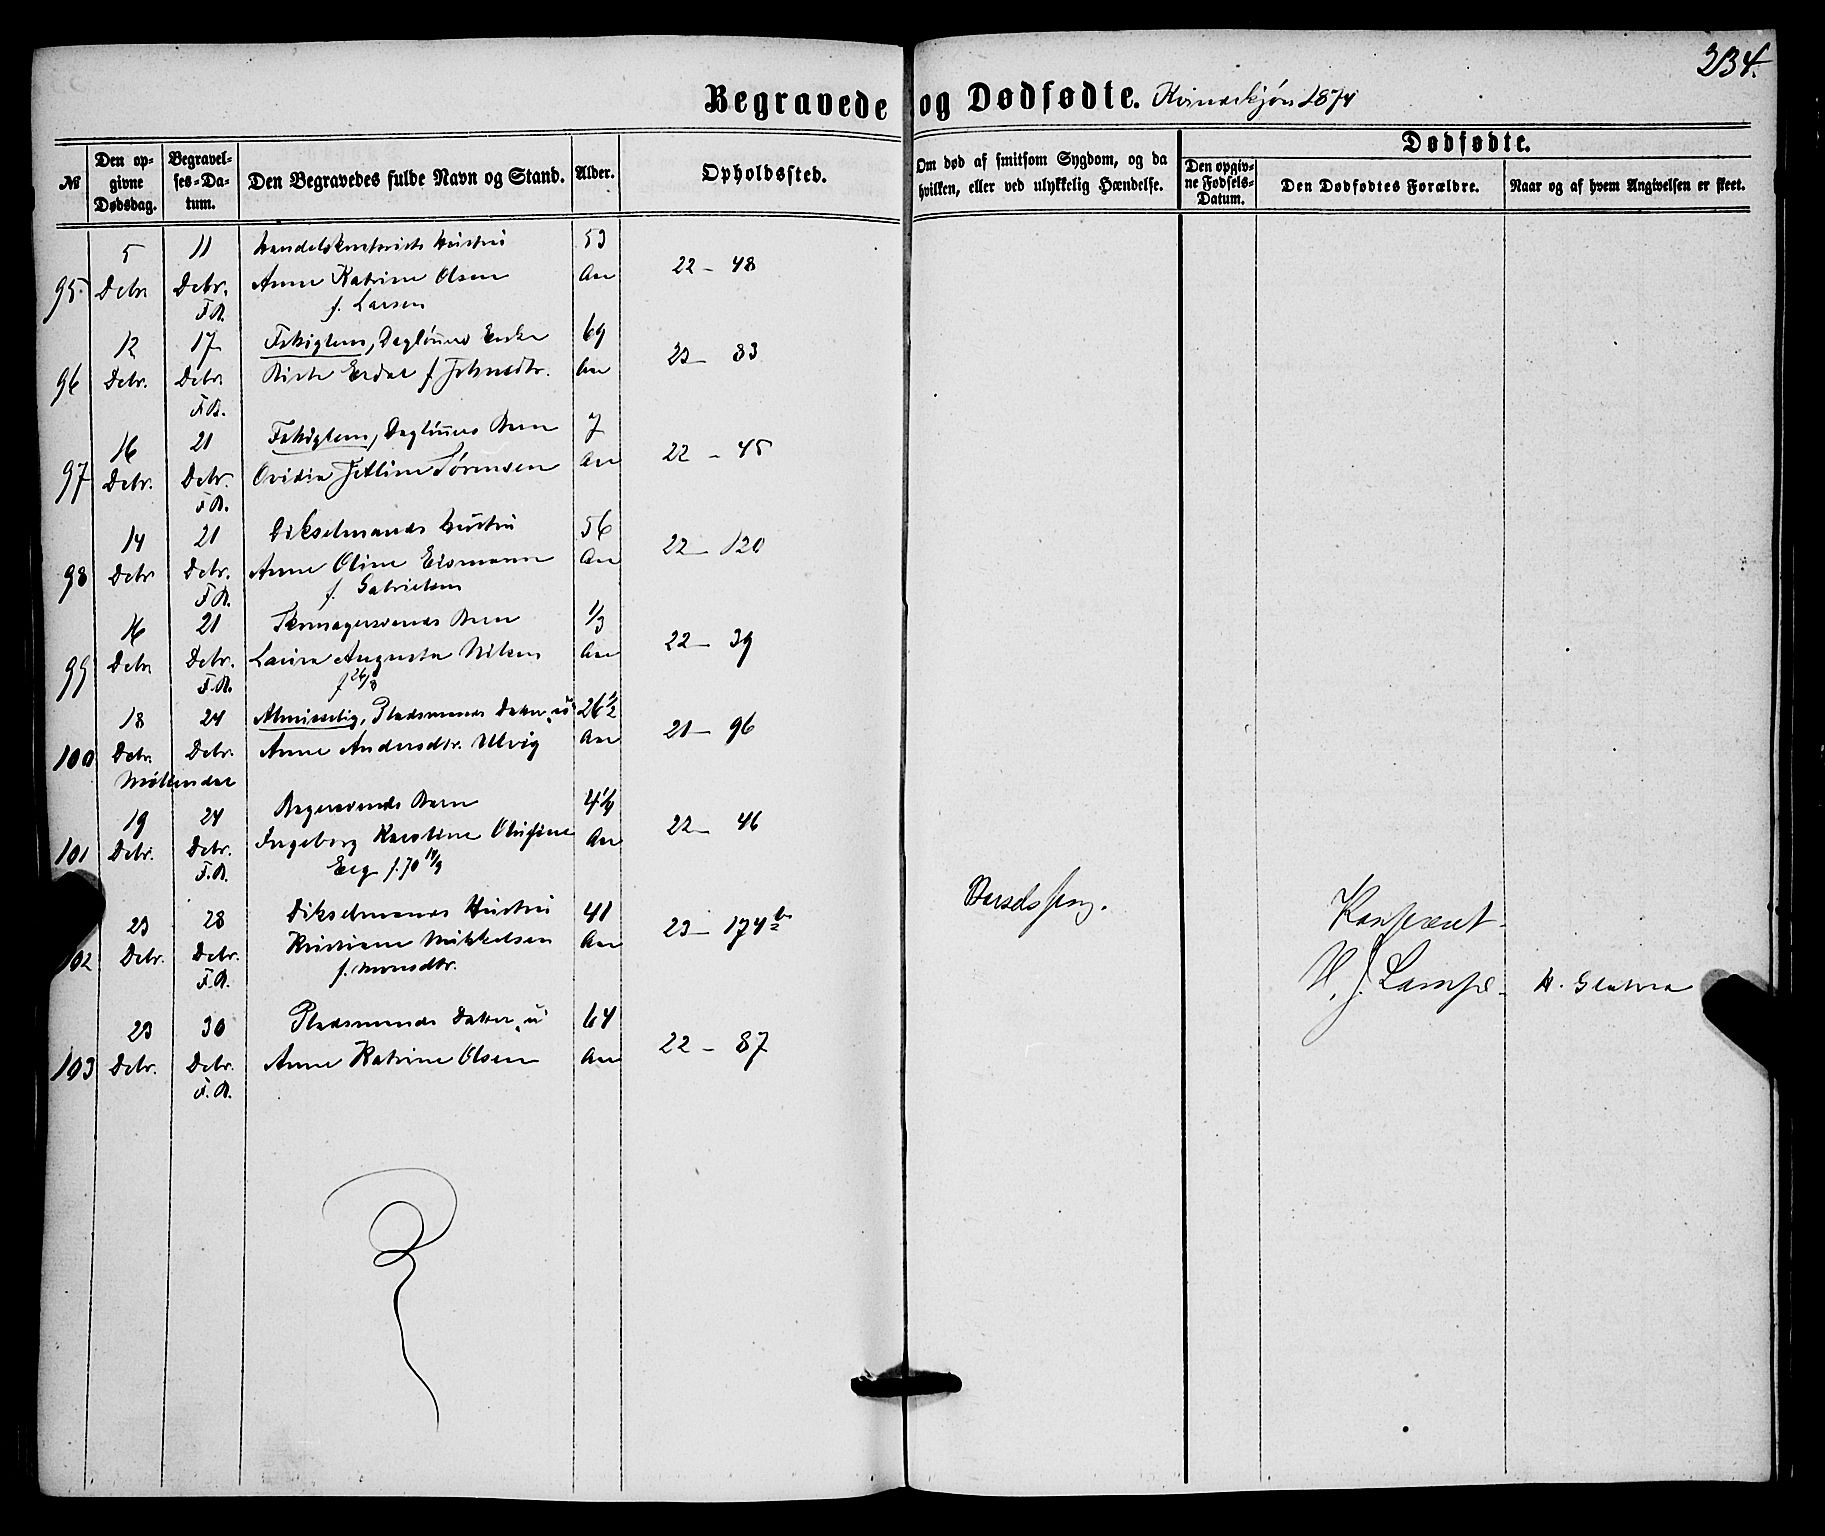 234.
Begravede og Dødfødte. Kvindekjøn 1874
№
Den op-
givne
Dødsdag.
Begravel-
ses-Da-
tum.
Den Begravedes fulde Navn og Stand.
Alder.
Opholdssted.
Om død af smitsom Sygdom, og da
hvilken, eller ved ulykkelig Hændelse.
Dødfødte.
Den opgiv-
ne Fødsels-
Datum.
Den Dødfødtes Forældre.
Naar og af hvem Angivelsen er skeet.
5 11 Hustru 53
95. Debr Debr. Anne Katrine Olsen Aar 22 - 48
F.B. f. Larsen
12 17 Fattiglem, Daglönners Enke 69
96 Debr. Debr. Aar 23 - 83
F.B.
16 21 Fattiglem, Daglönners Barn 7
97 Debr. Debr. Ovidia Sørensen Aar 22 - 45
F.B.
14 21 Hustru 56
98 Debr Debr. Anne Oline Eismann Aar 22 - 120
F.B. f. Gabrielsen
16 21 Barn 1/3
99 Debr Debr. Laura Augusta Nilsen Aar 22 - 39
F.B. f 26/8
18 24 Almisselig, Pladsmands Datter "u" 26 1/2
100 Debr. Debr. Anne Andersdtr. Ulvig Aar 21 - 96
Möllendal
19 24 Bagersvends Barn 4 1/4
101 Debr. Debr. Ingeborg Karstine Olufine Aar 22 - 46
F.B. f. 70
23 28 Hustru 41 Barselseng.
102 Debr. Debr. Kristiane Mikkelsen Aar 23 - 174 b
F.B. f. Monsdtr.
Konfereret
H. J. Lampe. H.
23 30 Pladsmands Datter "u" 64
103 Debr. Debr. Anne Katrine Olsen Aar 22 - 87
F.B.